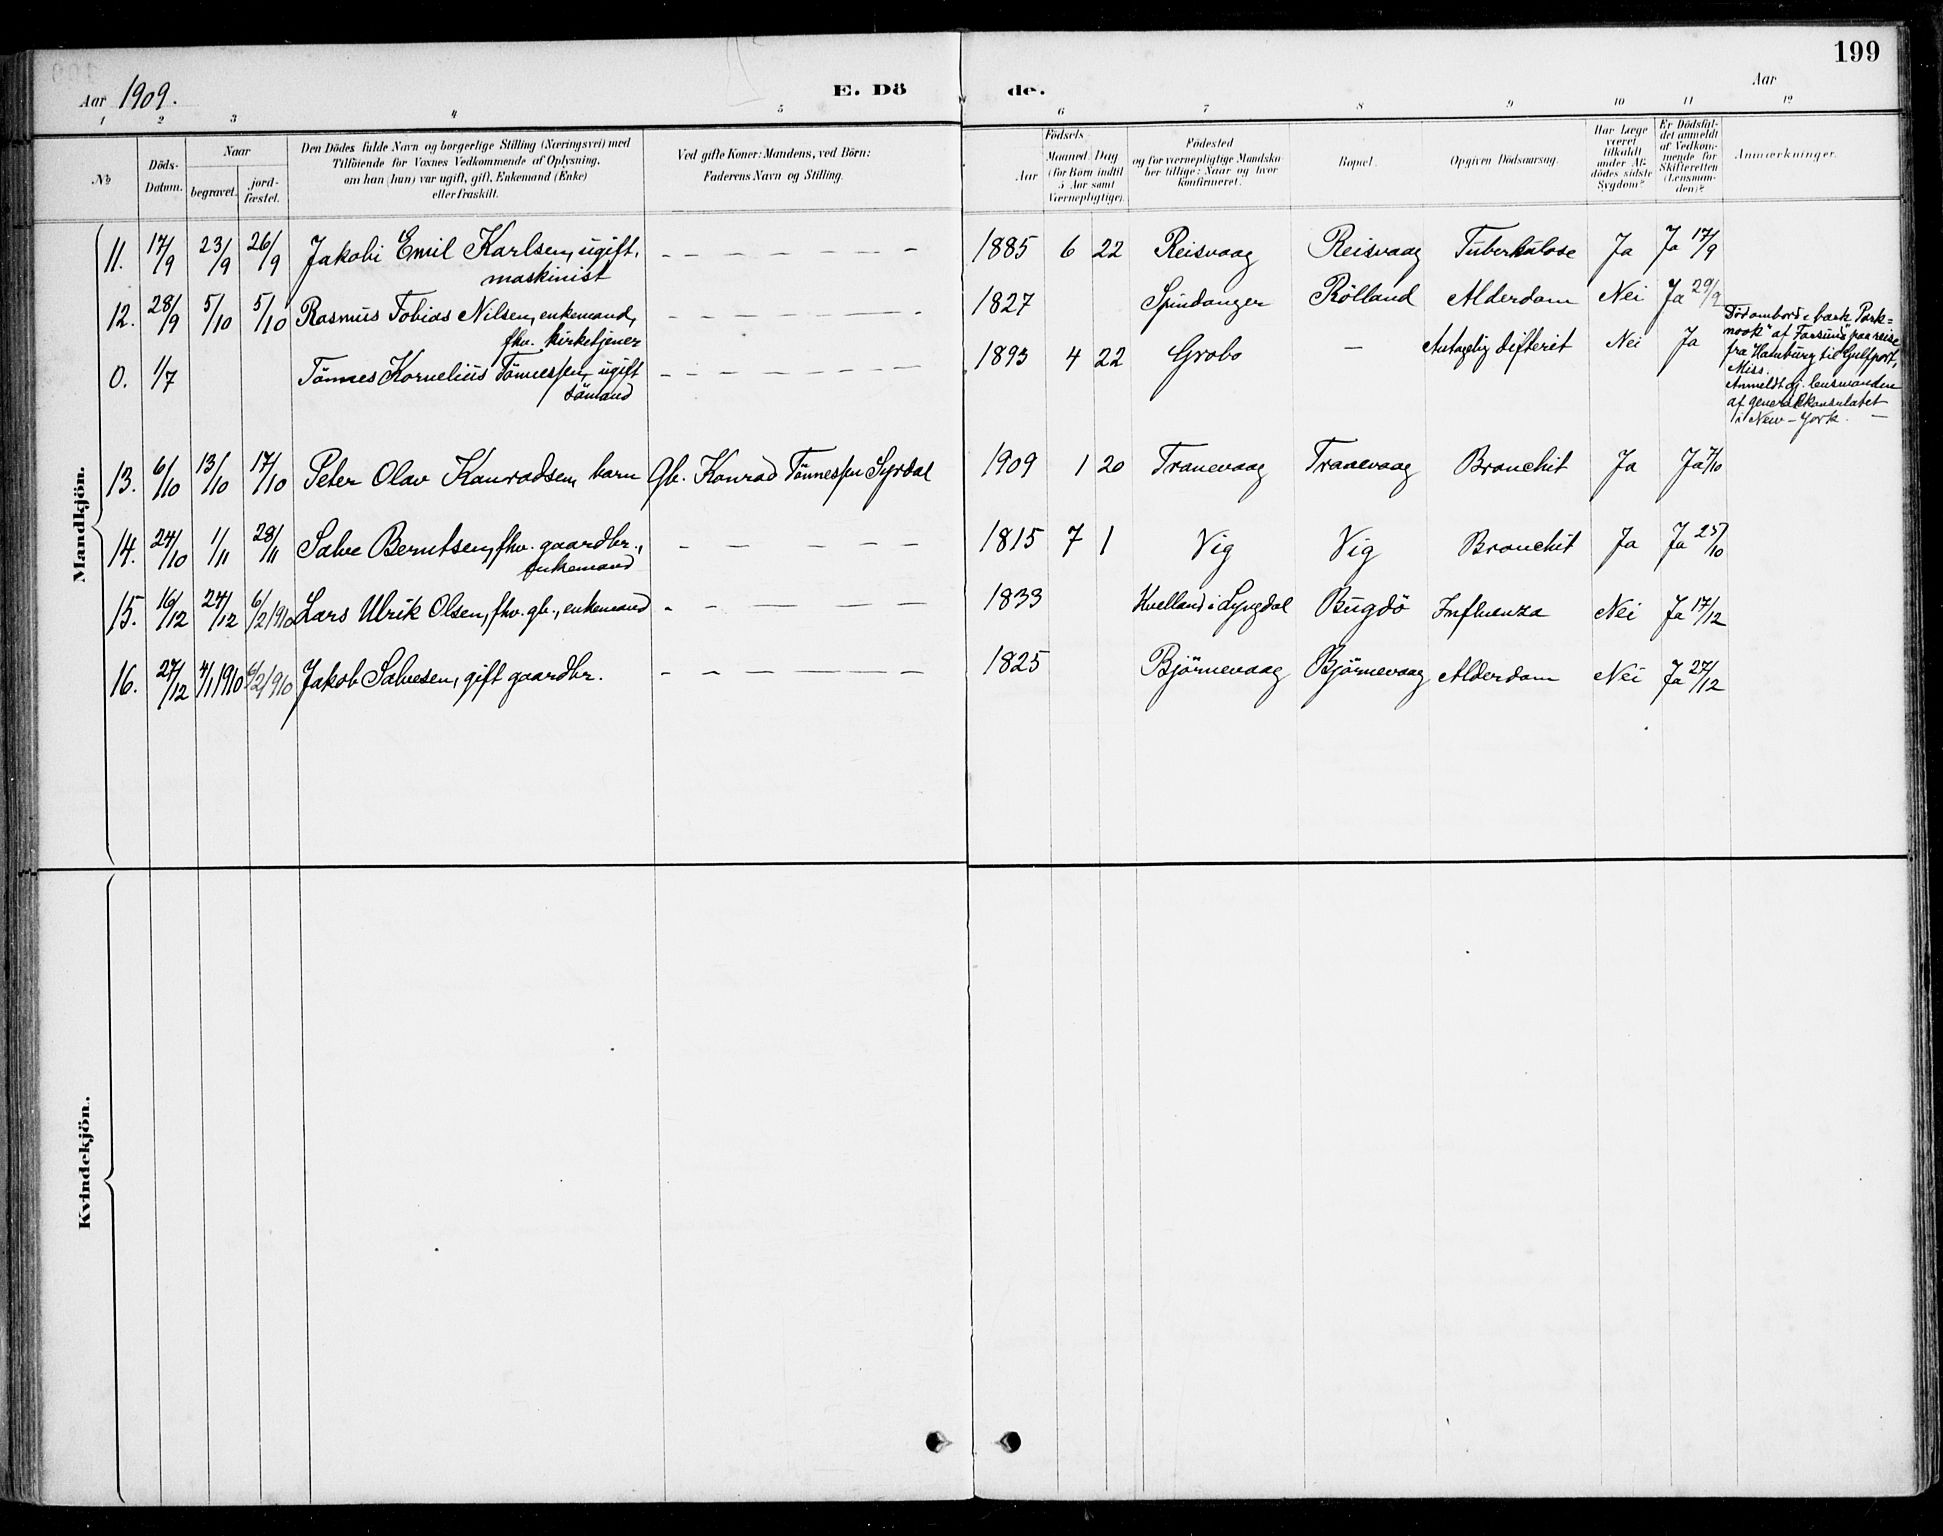 199
Aar 1909. E. Dö de. Aar
1 2 3 4 5 6 7 8 9 10 11 12
№ Döds-Datum. Naar begravet. jord-fæstet. Den Dödes fulde Navn og borgerlige Stilling (Næringsvei) med Tilföiende for Voxnes Vedkommende af Oplysning, om han (hun) var ugift, gift, Enkemand (Enke) eller fraskilt. Ved gifte Koner: Mandens, ved Börn: Faderens Navn og Stilling. Födsels Aar Maaned Dag (for Børn indtil 5 Aar samt Værnepligtige). Födested og for værnepligtige Mandskaber tillige: Naar og hvor konfirmeret. Bopæl. Opgiven Dödsaarsag. Har Læge været tilkaldt under Afdödes sidste Sygdom? Er Dödsfaldet anmeldt af Vedkommende for Skifteretten (Lensmanden)? Anmærkninger.
Mandkjön.
11. 17/9 23/9 26/9 Jakobi Emil Karlsen, ugift, - - - - - - - 1885 6 22 Reisvaag Reisvaag Tuberkulose Ja Ja 17/9
maskinist
12. 28/9 5/10 5/10 Rasmus Tobias Nilsen, enkemand, - - - - - - - 1827 Spindanger Rölland Alderdom Nei Ja 29/9
fhv. kirketjener
0. 1/7 Tönnes Kornelius Tönnessen, ugift - - - - - - - 1893 4 22 Grobo - Antagelig difterit Nei Ja
sömand
Död ombord i bark "Park-
nook" af Farsund paa reise
fra Hamburg til Gulfport,
Miss.
Anmeldt gj. lensmanden
af generalkonsulatet
i New-York. -
13. 6/10 13/10 17/10 Peter Olav Konradsen, barn Gb. Konrad Tönnessen Syrdal 1909 1 20 Tranevaag Tranevaag Bronchit Ja Ja 7/10
14. 24/10 1/11 28/11 Salve Berntsen, fhv. gaardbr., - - - - - 1815 7 1 Vig Vig Bronchit Ja Ja 25/10
enkemand
15. 16/12 24/12 6/2 1910 Lars Ulrik Olsen, fhv. gb., enkemand - - - - - - 1833 Kvelland i Lyngdal Bugdö Influenza Nei Ja 17/12
16. 27/12 4/1 1910 6/2 1910 Jakob Salvesen, gift gaardbr. - - - - - - 1825 Björnevaag Björnevaag Alderdom Nei Ja 27/12
Kvindekjön.